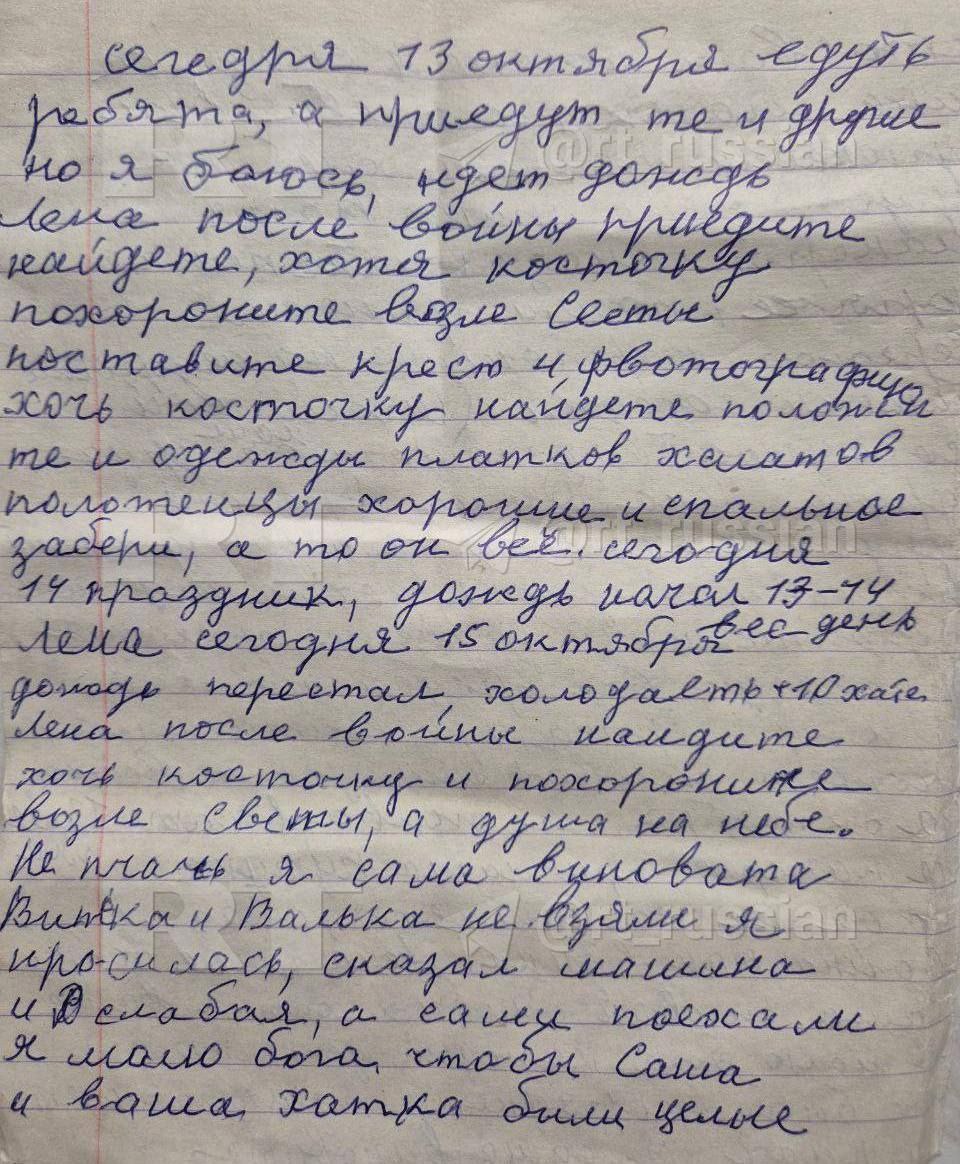 сегедря 13 октября едуть
ребята, а приедут те и другие
но я боюсь, идет дождь
Лена после войны приедите
найдете, хотя косточку
похороните возле Светы
поставите крест и фвотографию
хочь косточку найдете положи
те и одежды платков халатов
полотенцы хорошие и спальное
забери, а то он веч. сегодня
14 праздник, дождь начал 13-14
Лена сегодня 15 октября вес день
дождь перестал, холодаеть +10 хате
Лена после войны наидите
хочь косточку и похороните
возле Светы, а душа на небе.
Не плачь я сама виновата
Витка и Валька не взяли я
просилась, сказал машина
и слабая, а сами поехали
я малю бога чтобы Саша
и ваша хатка били целые
@rt_russian
@rt_russian
@rt_russian